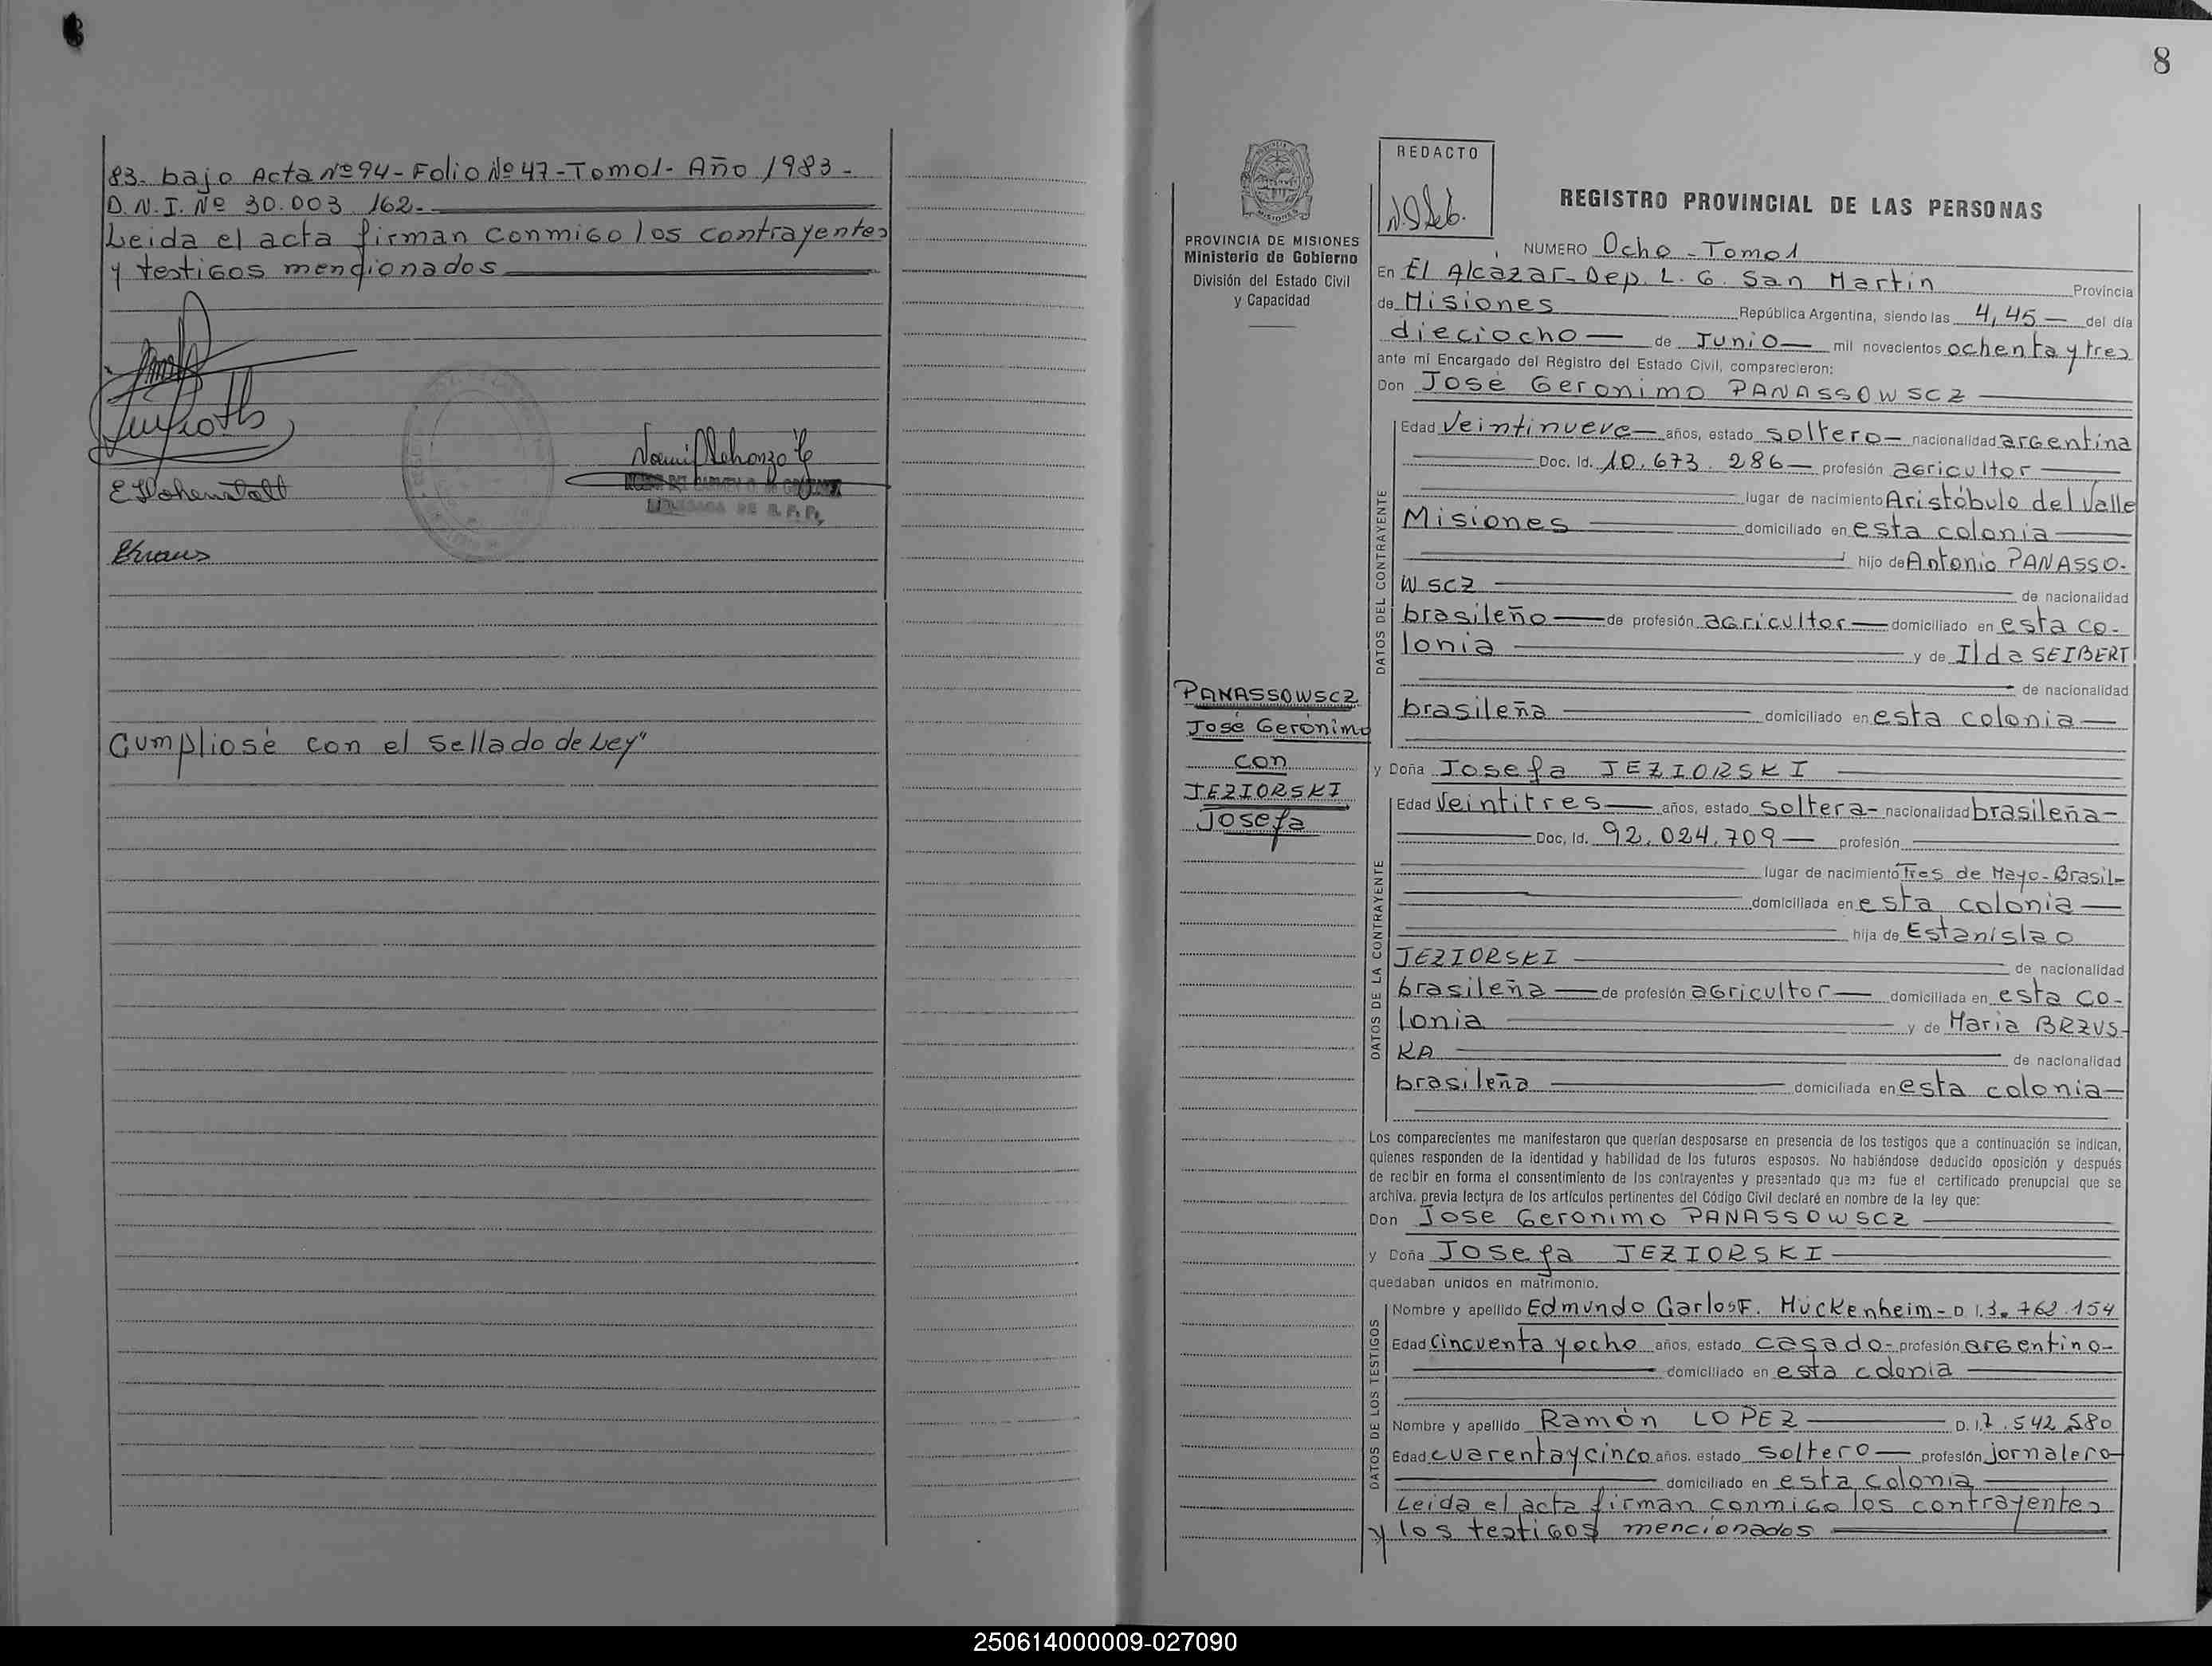 83- bajo Acta Nº 94- Folio Nº 47-Tomo1- Año 1983-
D.N.I. Nº 30.003 162-
Leida el acta firman conmigo los contrayentes
y testigos mencionados
E Hohenstatt
Kraus
Cumpliosé con el sellado de Ley"
8
PROVINCIA DE MISIONES
Ministerio de Gobierno
División del Estado Civil
y Capacidad
PANASSOWSCZ
José Gerónimo
con
JEZIORSKI
Josefa
REDACTO
REGISTRO PROVINCIAL DE LAS PERSONAS
NUMERO Ocho - Tomo1
En El Alcázar- Dep. L. G. San Martin Provincia
de Misiones República Argentina, siendo las 4,45 del día
dieciocho de Junio mil novecientos ochenta y tres
ante mí Encargado del Registro del Estado Civil, comparecieron:
Don José Geronimo PANASSOWSCZ
DATOS DEL CONTRAYENTE
Edad Veintinueve años, estado soltero- nacionalidad argentina
Doc. Id. 10.673.286 profesión agricultor
lugar de nacimiento Aristóbulo del Valle
Misiones domiciliado en esta colonia
hijo de Antonio PANASSO-
WSCZ de nacionalidad
brasileño de profesión agricultor domiciliado en esta co-
lonia y de Ilda SEIBERT
de nacionalidad
brasileña domiciliado en esta colonia
y Doña Josefa JEZIORSKI
DATOS DE LA CONTRAYENTE
Edad Veintitres años, estado soltera- nacionalidad brasileña-
Doc. Id. 92.024.709 profesión
lugar de nacimiento Tres de Mayo-Brasil-
domiciliada en esta colonia
hija de Estanislao
JEZIORSKI de nacionalidad
brasileña de profesión agricultor domiciliada en esta co-
lonia y de Maria BRZUS-
KA de nacionalidad
brasileña domiciliada en esta colonia
Los comparecientes me manifestaron que querían desposarse en presencia de los testigos que a continuación se indican,
quienes responden de la identidad y habilidad de los futuros esposos. No habiéndose deducido oposición y después
de recibir en forma el consentimiento de los contrayentes y presentado que me fue el certificado prenupcial que se
archiva, previa lectura de los artículos pertinentes del Código Civil declaré en nombre de la ley que:
Don Jose Geronimo PANASSOWSCZ
y Doña Josefa JEZIORSKI
quedaban unidos en matrimonio.
DATOS DE LOS TESTIGOS
Nombre y apellido Edmundo Carlos F. Mückenheim- D.I. 3.762.154
Edad Cincuenta y ocho años, estado casado- profesión argentino-
domiciliado en esta colonia
Nombre y apellido Ramón LOPEZ D. I 7.542.580
Edad cuarenta y cinco años, estado soltero profesión jornalero
domiciliado en esta colonia
Leida el acta firman conmigo los contrayentes
y los testigos mencionados
250614000009-027090